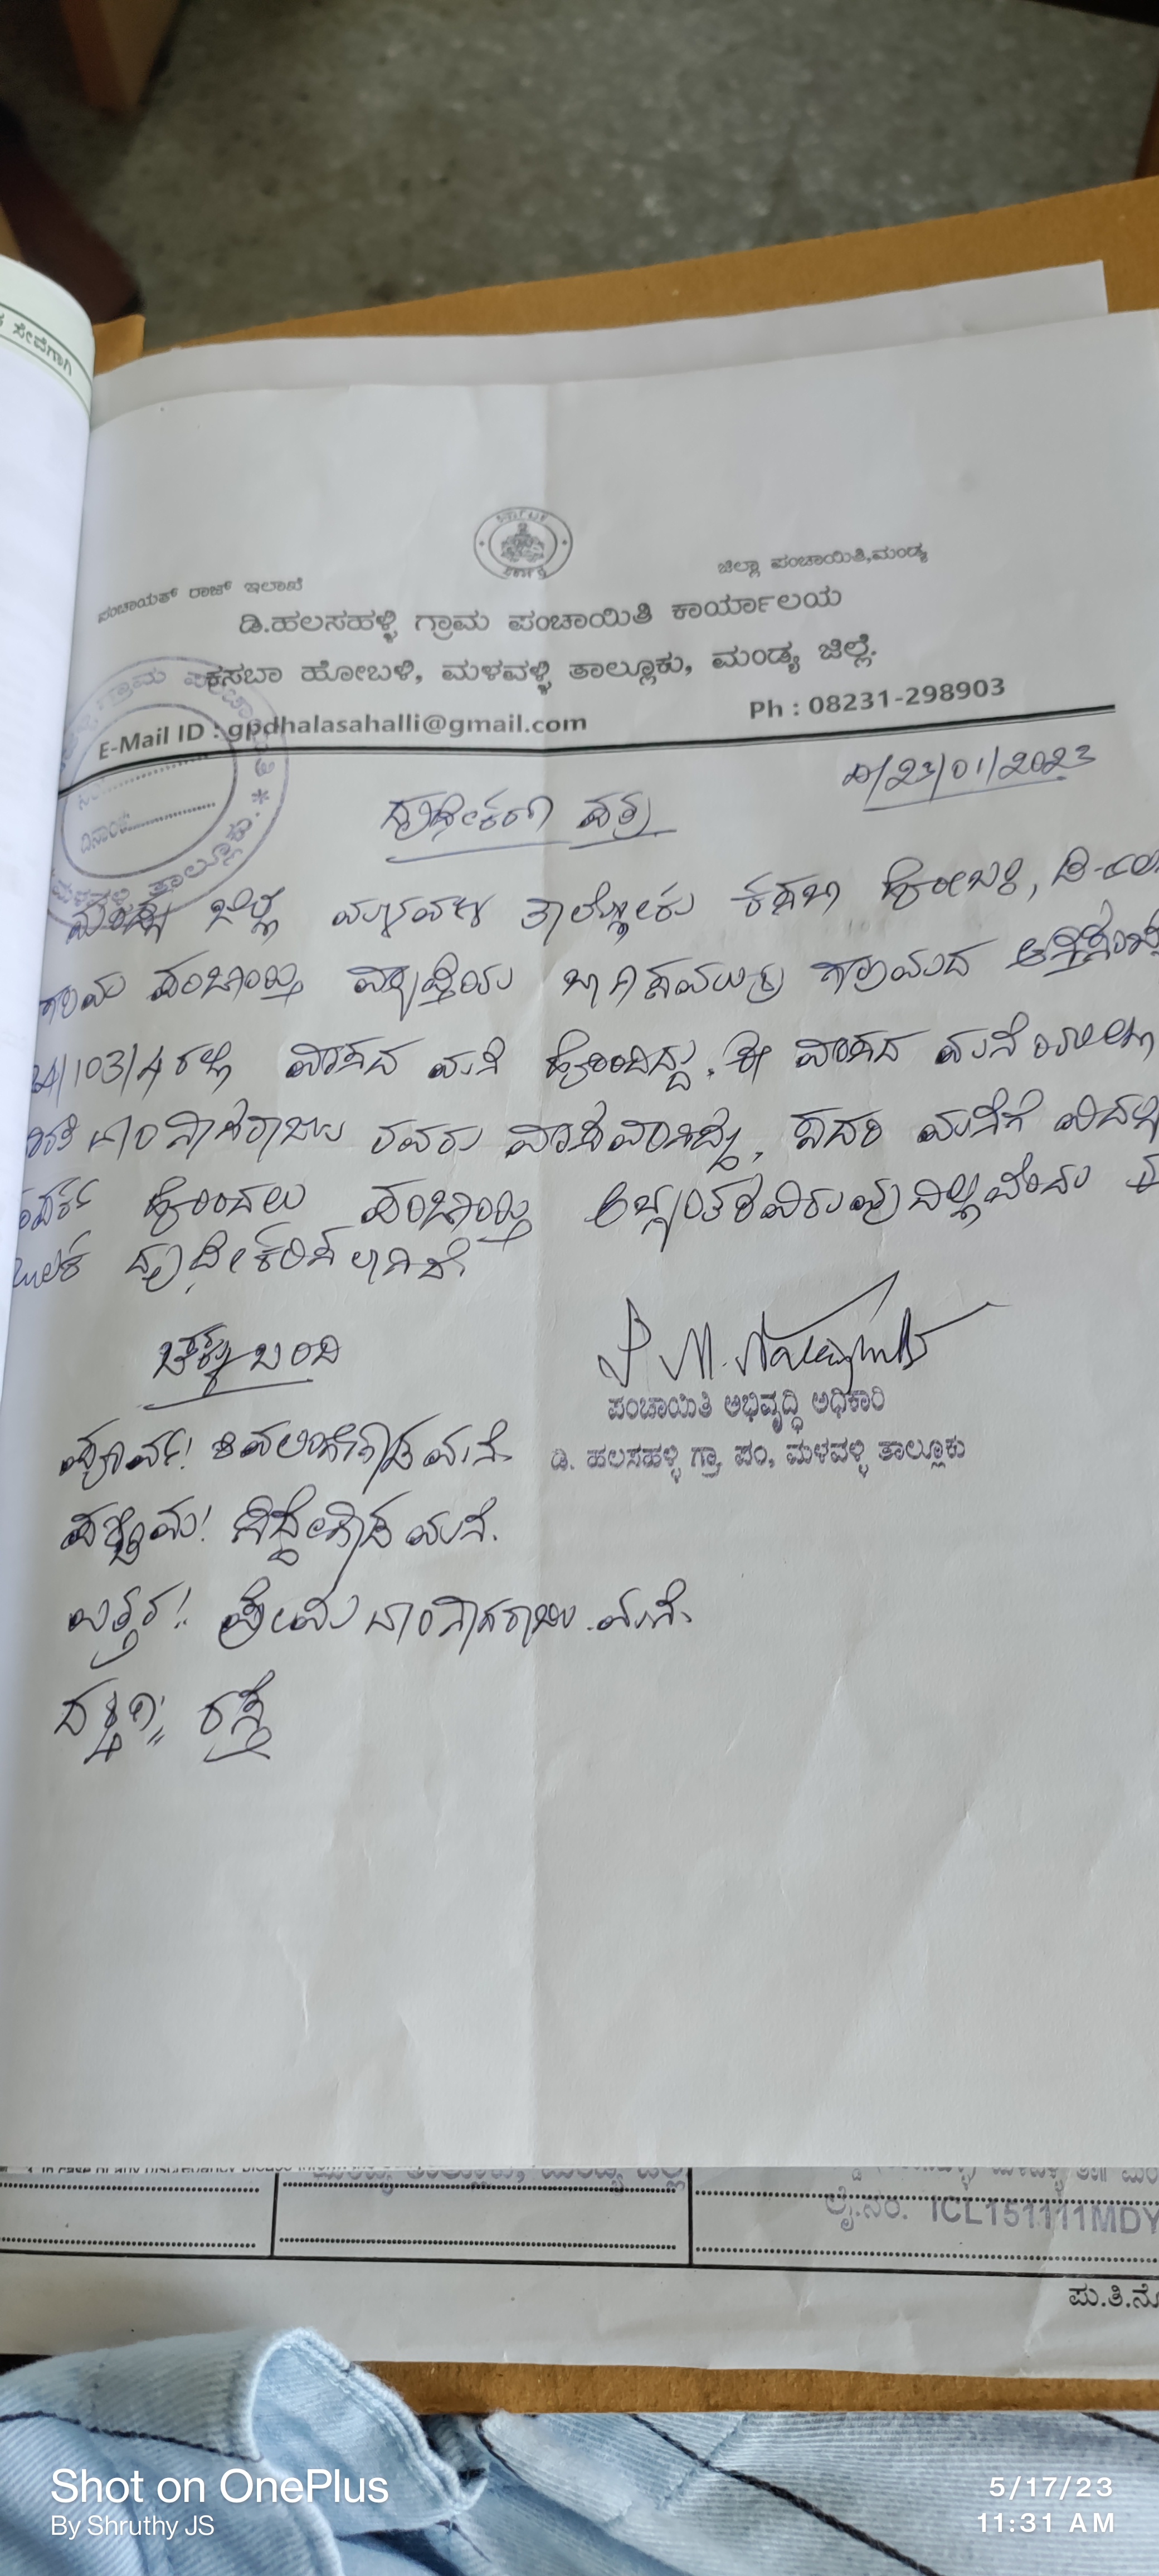 ಸೇವೆಗಾಗಿ
ಪಂಚಾಯತ್ ರಾಜ್ ಇಲಾಖೆ
ಜಿಲ್ಲಾ ಪಂಚಾಯಿತಿ,ಮಂಡ್ಯ
ಡಿ.ಹಲಸಹಳ್ಳಿ ಗ್ರಾಮ ಪಂಚಾಯಿತಿ ಕಾರ್ಯಾಲಯ
ಕಸಬಾ ಹೋಬಳಿ, ಮಳವಳ್ಳಿ ತಾಲ್ಲೂಕು, ಮಂಡ್ಯ ಜಿಲ್ಲೆ.
E-Mail ID : gpdhalasahalli@gmail.com
Ph : 08231-298903
ದಿನಾಂಕ
23/01/2023
ದೃಢೀಕರಣ ಪತ್ರ
ಮಂಡ್ಯ ಜಿಲ್ಲೆ ಮಳವಳ್ಳಿ ತಾಲ್ಲೋಕು ಕಸಬಾ ಹೋಬಳಿ,
ಗ್ರಾಮ ಪಂಚಾಯ್ತಿ ವ್ಯಾಪ್ತಿಯ ಗ್ರಾಮದ
/103/4 ರಲ್ಲಿ ವಾಸದ ಮನೆ ಹೊಂದಿದ್ದು, ಈ ವಾಸದ ಮನೆಯಲ್ಲಿ
ನಾಗರಾಜು ರವರು ವಾಸವಾಗಿದ್ದು, ಸದರಿ ಮನೆಗೆ
ಹೊಂದಲು ಪಂಚಾಯ್ತಿ ಅಭ್ಯಂತರವಿರುವುದಿಲ್ಲವೆಂದು ಈ
ಮೂಲಕ ದೃಢೀಕರಿಸಲಾಗಿದೆ.
ಚಕ್ಕುಬಂದಿ
ಪಂಚಾಯಿತಿ ಅಭಿವೃದ್ಧಿ ಅಧಿಕಾರಿ
ಡಿ. ಹಲಸಹಳ್ಳಿ ಗ್ರಾ. ಪಂ, ಮಳವಳ್ಳಿ ತಾಲ್ಲೂಕು
ಪೂರ್ವ: ಶಿವಲಿಂಗೇಗೌಡ ಮನೆ.
ಪಶ್ಚಿಮ: ಸಿದ್ದೇಗೌಡ ಮನೆ.
ಉತ್ತರ: ಪ್ರೇಮ ನಾಗರಾಜು ಮನೆ.
ದಕ್ಷಿಣ: ರಸ್ತೆ
ಲೈ.ನಂ. ICL151111MDY
ಪು.ತಿ.ನೋ
Shot on OnePlus
By Shruthy JS
5/17/23
11:31 AM